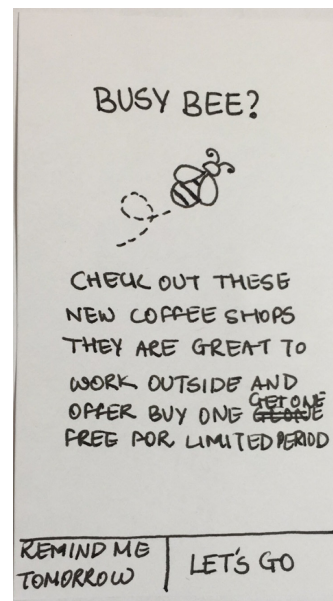 BUSY BEE?
CHECK OUT THESE
NEW COFFEE SHOPS
THEY ARE GREAT TO
WORK OUTSIDE AND
OFFER BUY ONE GET ONE
FREE FOR LIMITED PERIOD
REMIND ME
TOMORROW
LET'S GO